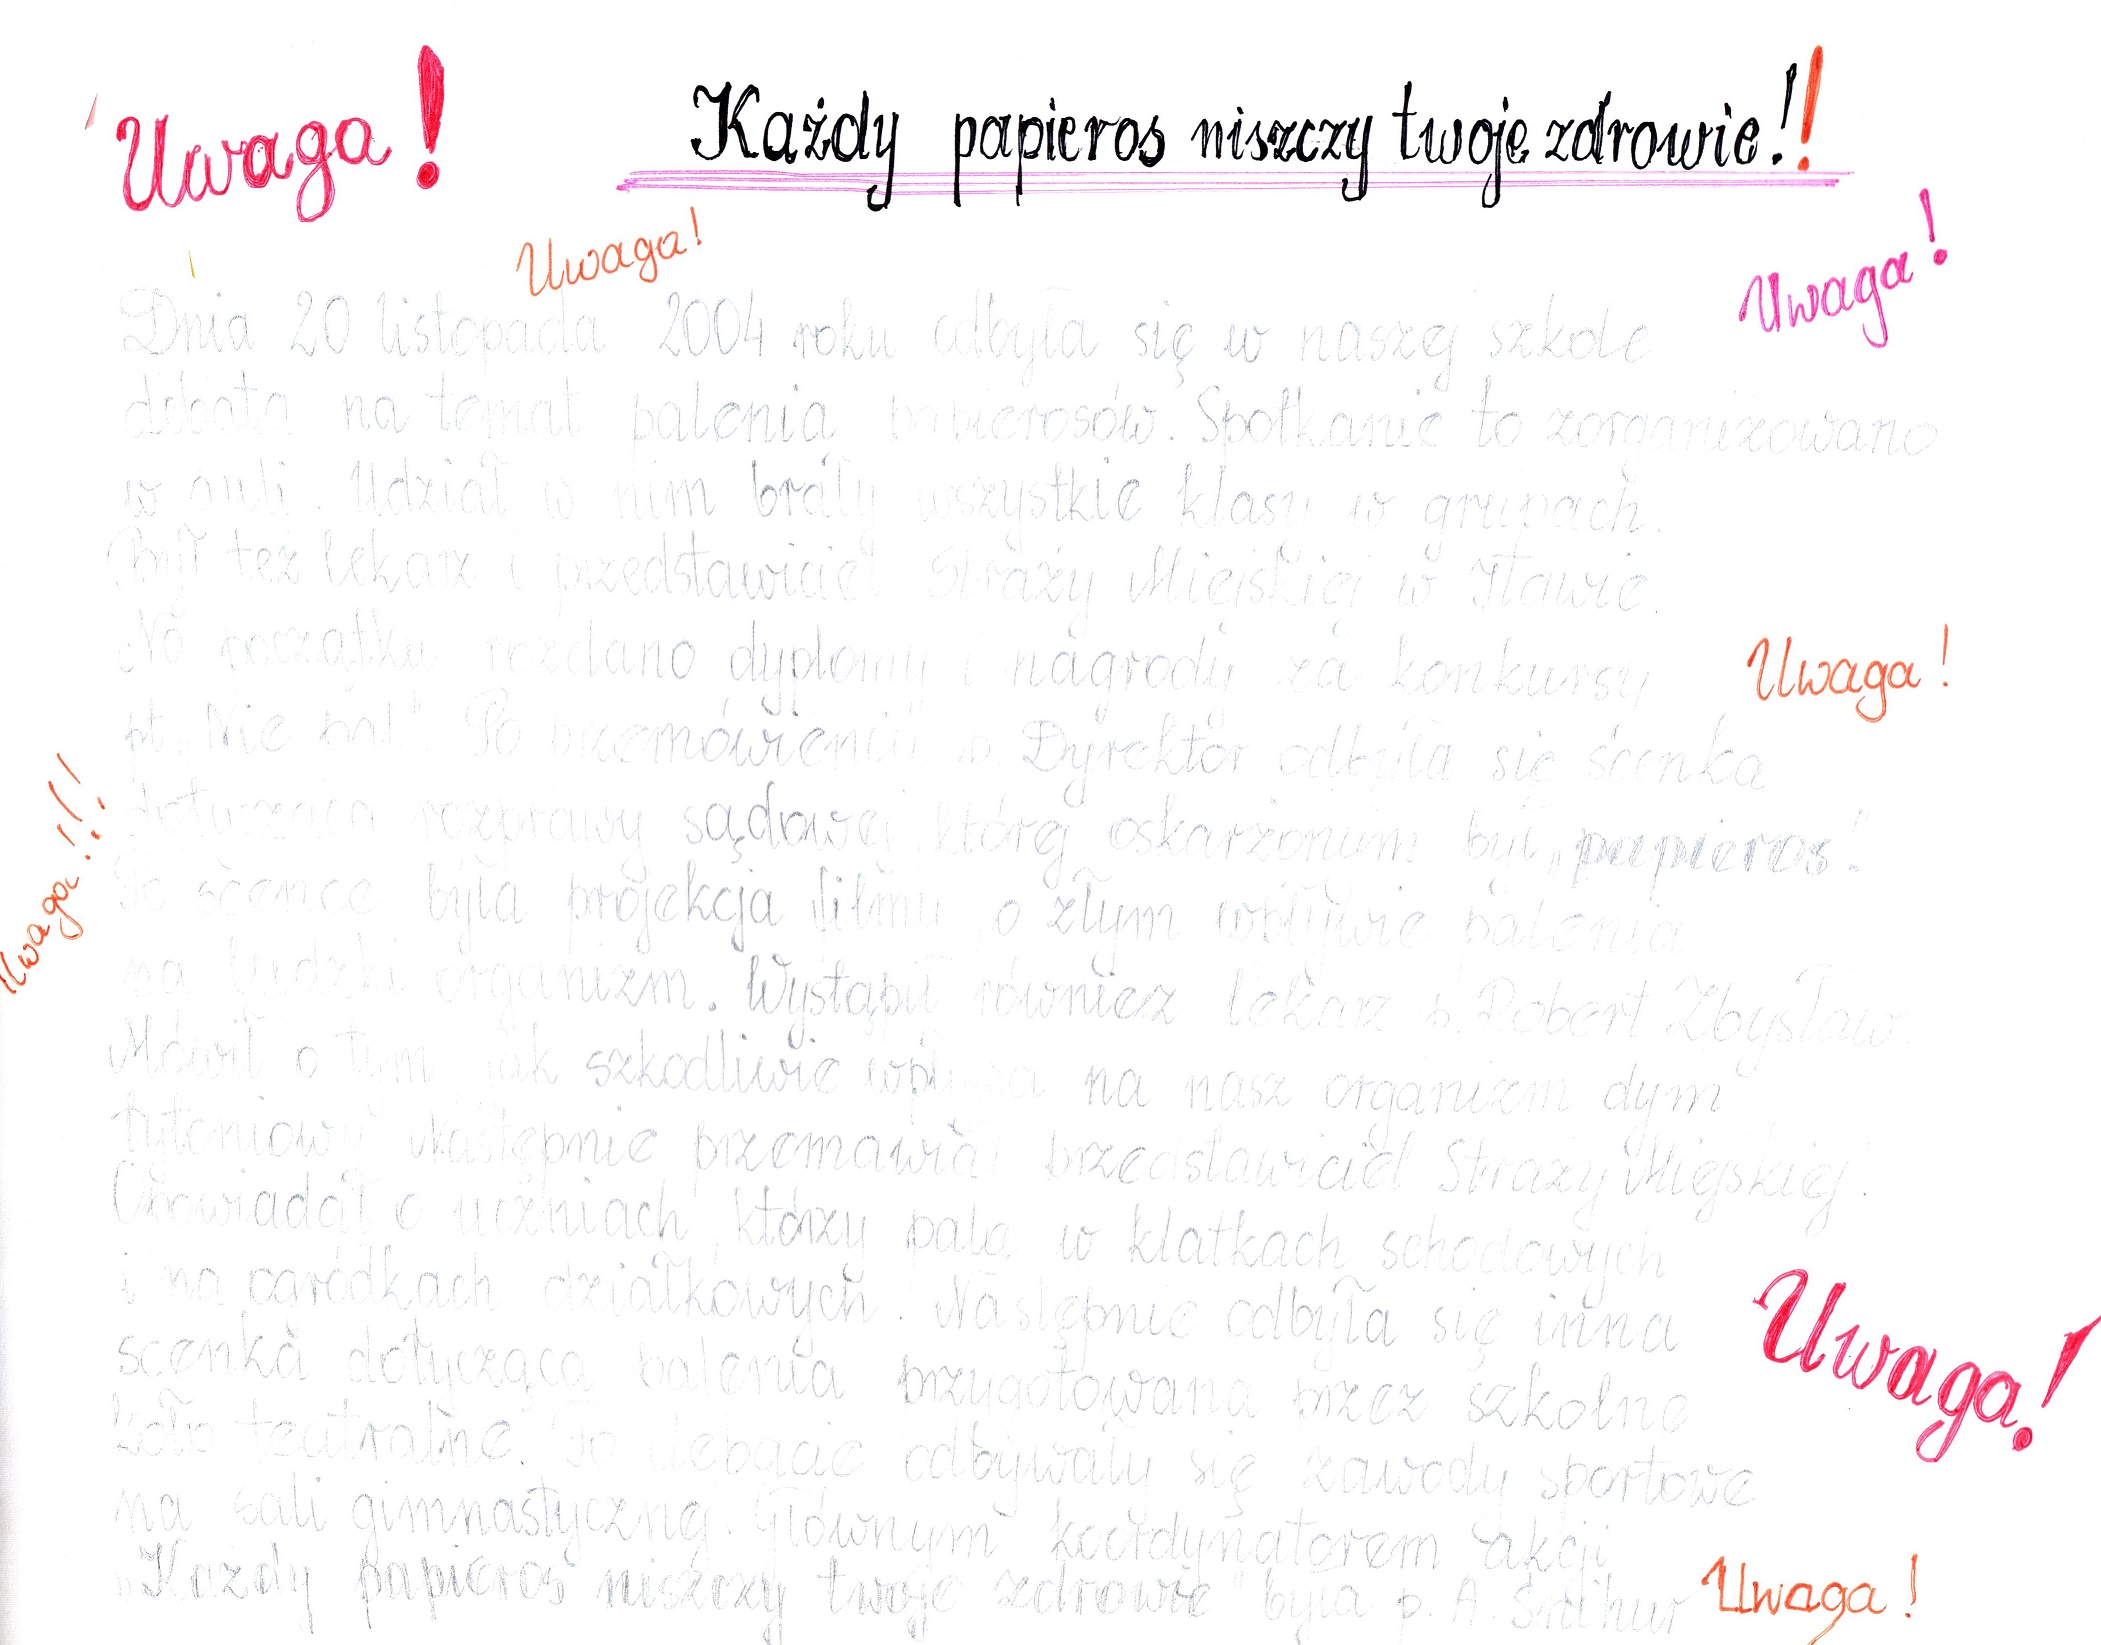 Uwaga!
Każdy papieros niszczy twoje zdrowie!!
Uwaga!
Uwaga!
Dnia 20 listopada 2004 roku odbyła się w naszej szkole
debata na temat palenia papierosów. Spotkanie to zorganizowano
w auli. Udział w nim brały wszystkie klasy w grupach.
Był też lekarz i przedstawiciel Straży Miejskiej w Iławie.
Na początku rozdano dyplomy i nagrody za konkursy
Uwaga!
pt. „Nie pal". Po przemówieniu p. Dyrektor odbyła się scenka
Uwaga!!!
dotycząca rozprawy sądowej, której oskarżonym był „papieros".
Po scence była projekcja filmu o złym wpływie palenia
na ludzki organizm. Wystąpił również lekarz p. Robert Zbysław.
Mówił o tym, jak szkodliwie wpływa na nasz organizm dym
tytoniowy. Następnie przemawiał przedstawiciel Straży Miejskiej.
Opowiadał o uczniach, którzy palą w klatkach schodowych
i na ogródkach działkowych. Następnie odbyła się inna
scenka dotycząca palenia przygotowana przez szkolne
Uwaga!
koło teatralne. Po debacie odbywały się zawody sportowe
na sali gimnastycznej. Głównym koordynatorem akcji
„Każdy papieros niszczy twoje zdrowie" była p. A.
Uwaga!